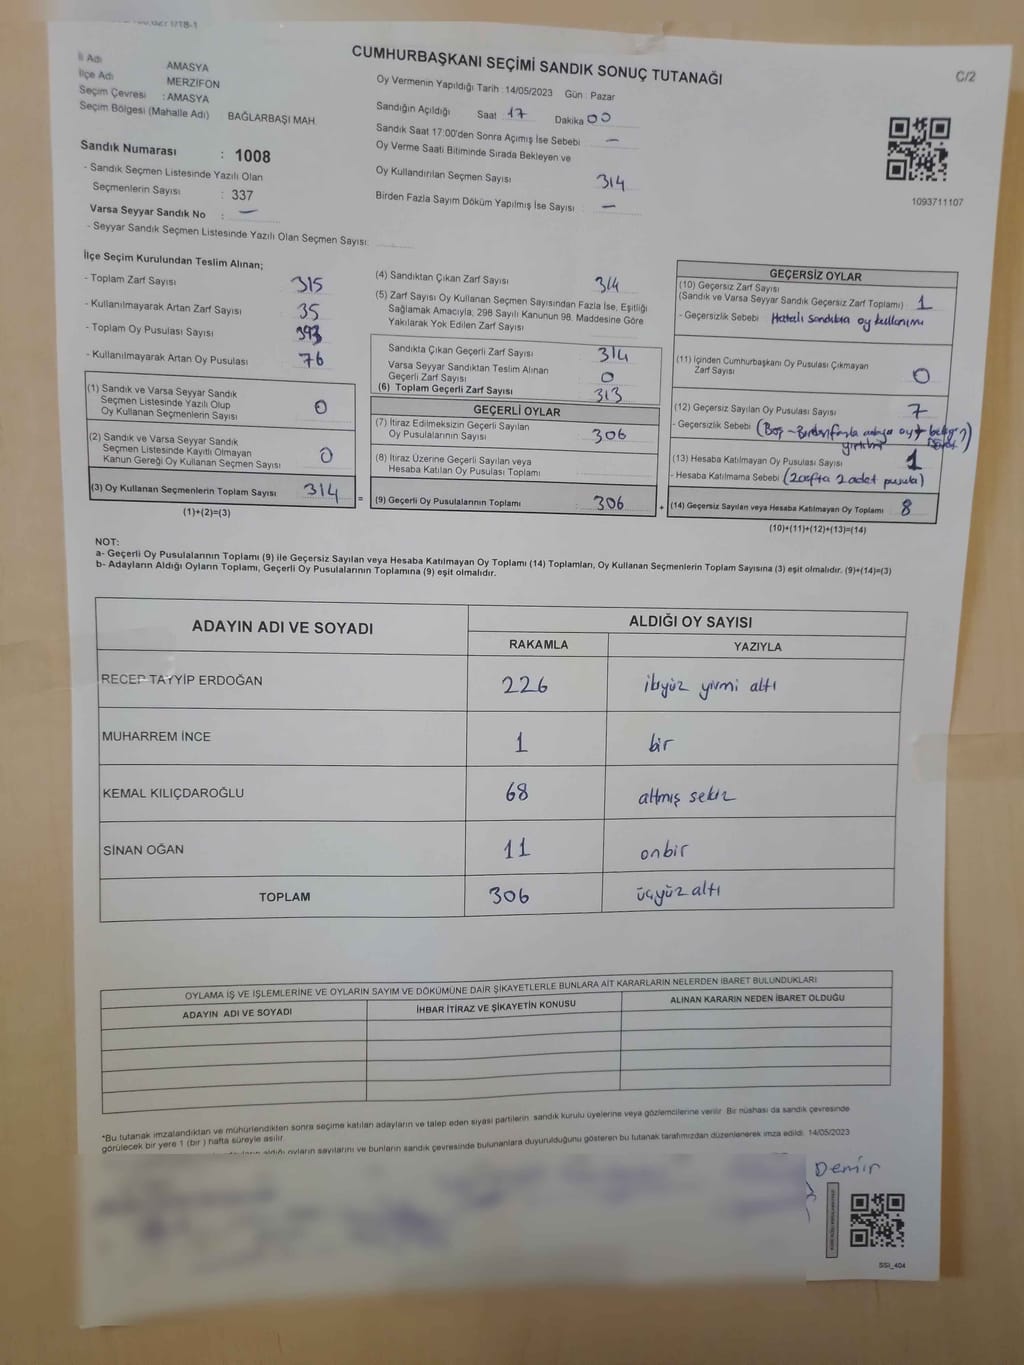 CUMHURBAŞKANI SEÇİMİ SANDIK SONUÇ TUTANAĞI
C/2
İl Adı AMASYA
İlçe Adı MERZİFON
Seçim Çevresi : AMASYA
Seçim Bölgesi (Mahalle Adı) BAĞLARBAŞI MAH.
Sandık Numarası : 1008
- Sandık Seçmen Listesinde Yazılı Olan
Seçmenlerin Sayısı : 337
Varsa Seyyar Sandık No : —
- Seyyar Sandık Seçmen Listesinde Yazılı Olan Seçmen Sayısı:
Oy Vermenin Yapıldığı Tarih : 14/05/2023 Gün : Pazar
Sandığın Açıldığı Saat 17 Dakika 00
Sandık Saat 17:00'den Sonra Açımış İse Sebebi —
Oy Verme Saati Bitiminde Sırada Bekleyen ve
Oy Kullandırılan Seçmen Sayısı 314
Birden Fazla Sayım Döküm Yapılmış İse Sayısı —
1093711107
İlçe Seçim Kurulundan Teslim Alınan;
- Toplam Zarf Sayısı 315
- Kullanılmayarak Artan Zarf Sayısı 35
- Toplam Oy Pusulası Sayısı
- Kullanılmayarak Artan Oy Pusulası 76
(1) Sandık ve Varsa Seyyar Sandık
Seçmen Listesinde Yazılı Olup
Oy Kullanan Seçmenlerin Sayısı 0
(2) Sandık ve Varsa Seyyar Sandık
Seçmen Listesinde Kayıtlı Olmayan
Kanun Gereği Oy Kullanan Seçmen Sayısı 0
(3) Oy Kullanan Seçmenlerin Toplam Sayısı 314 =
(1)+(2)=(3)
(4) Sandıktan Çıkan Zarf Sayısı 314
(5) Zarf Sayısı Oy Kullanan Seçmen Sayısından Fazla İse, Eşitliği
Sağlamak Amacıyla; 298 Sayılı Kanunun 98. Maddesine Göre
Yakılarak Yok Edilen Zarf Sayısı
Sandıkta Çıkan Geçerli Zarf Sayısı 314
Varsa Seyyar Sandıktan Teslim Alınan
Geçerli Zarf Sayısı 0
(6) Toplam Geçerli Zarf Sayısı 313
GEÇERLİ OYLAR
(7) İtiraz Edilmeksizin Geçerli Sayılan
Oy Pusulalarının Sayısı 306
(8) İtiraz Üzerine Geçerli Sayılan veya
Hesaba Katılan Oy Pusulası Toplamı
(9) Geçerli Oy Pusulalarının Toplamı 306 +
GEÇERSİZ OYLAR
(10) Geçersiz Zarf Sayısı
(Sandık ve Varsa Seyyar Sandık Geçersiz Zarf Toplamı) 1
- Geçersizlik Sebebi Hatalı Sandıkta oy kullanımı
(11) İçinden Cumhurbaşkanı Oy Pusulası Çıkmayan
Zarf Sayısı 0
(12) Geçersiz Sayılan Oy Pusulası Sayısı 7
- Geçersizlik Sebebi (Boş - Birden fazla adaya oy
(13) Hesaba Katılmayan Oy Pusulası Sayısı 1
- Hesaba Katılmama Sebebi (zarfta 2 adet pusula)
(14) Geçersiz Sayılan veya Hesaba Katılmayan Oy Toplamı 8
(10)+(11)+(12)+(13)=(14)
NOT:
a- Geçerli Oy Pusulalarının Toplamı (9) ile Geçersiz Sayılan veya Hesaba Katılmayan Oy Toplamı (14) Toplamları, Oy Kullanan Seçmenlerin Toplam Sayısına (3) eşit olmalıdır. (9)+(14)=(3)
b- Adayların Aldığı Oyların Toplamı, Geçerli Oy Pusulalarının Toplamına (9) eşit olmalıdır.
ADAYIN ADI VE SOYADI ALDIĞI OY SAYISI
RAKAMLA YAZIYLA
RECEP TAYYİP ERDOĞAN 226 ikiyüz yirmi altı
MUHARREM İNCE 1 bir
KEMAL KILIÇDAROĞLU 68 altmış sekiz
SİNAN OĞAN 11 onbir
TOPLAM 306 üçyüz altı
OYLAMA İŞ VE İŞLEMLERİNE VE OYLARIN SAYIM VE DÖKÜMÜNE DAİR ŞİKAYETLERLE BUNLARA AİT KARARLARIN NELERDEN İBARET BULUNDUKLARI
ADAYIN ADI VE SOYADI İHBAR İTİRAZ VE ŞİKAYETİN KONUSU ALINAN KARARIN NEDEN İBARET OLDUĞU
*Bu tutanak imzalandıktan ve mühürlendikten sonra seçime katılan adayların ve talep eden siyasi partilerin sandık kurulu üyelerine veya gözlemcilerine verilir. Bir nüshası da sandık çevresinde
görülecek bir yere 1 (bir ) hafta süreyle asılır.
aldığı oyların sayılarını ve bunların sandık çevresinde bulunanlara duyurulduğunu gösteren bu tutanak tarafımızdan düzenlenerek imza edildi. 14/05/2023
Demir
SSI_404